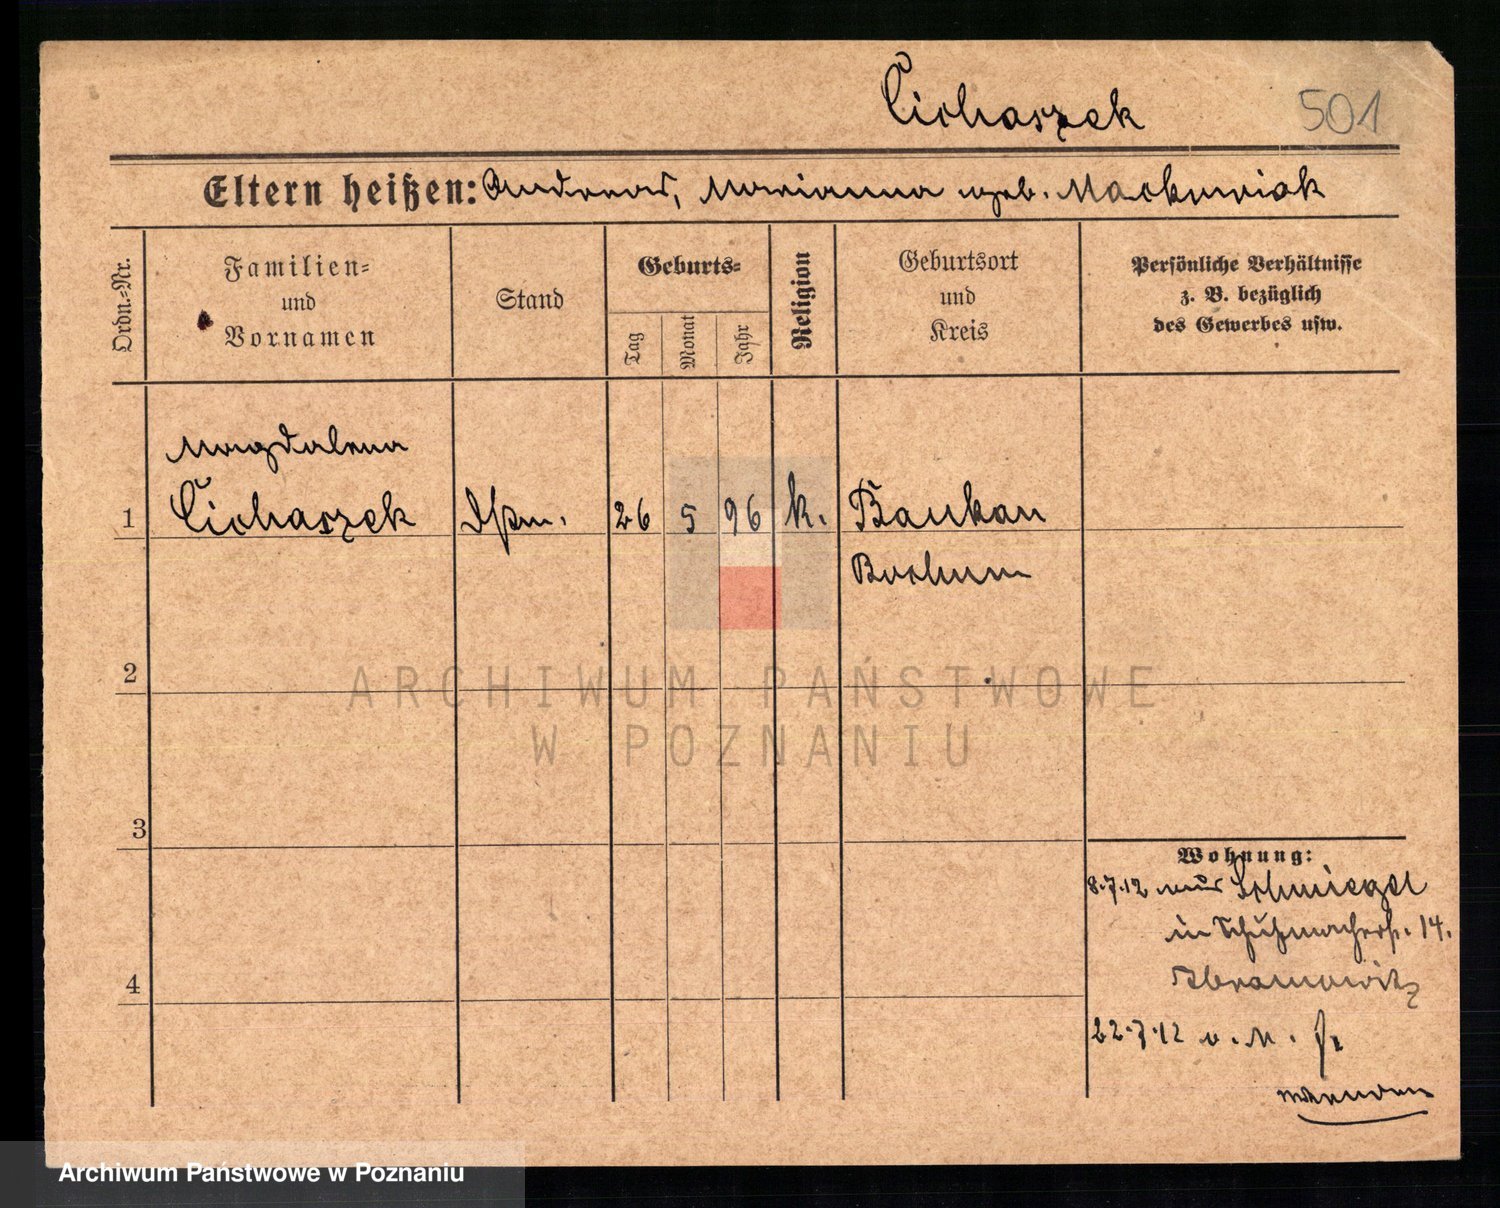 Cichaszek 501
Eltern heißen: Andreas, Marianna geb. Maćkowiak
Ordn.-Nr.
Familien-
und
Vornamen
Stand
Geburts-
Tag
Monat
Jahr
Religion
Geburtsort
und
Kreis
Persönliche Verhältnisse
z. B. bezüglich
des Gewerbes usw.
Magdalena
1 Cichaszek 26 5 96 k. Baukau
Bochum
2
ARCHIWUM PAŃSTWOWE
W POZNANIU
3
Wohnung:
8.7.12 aus Schmiegel
in Schuhmacherstr. 14.
Abramowitz
4
22.7.12 v. M.
Archiwum Państwowe w Poznaniu